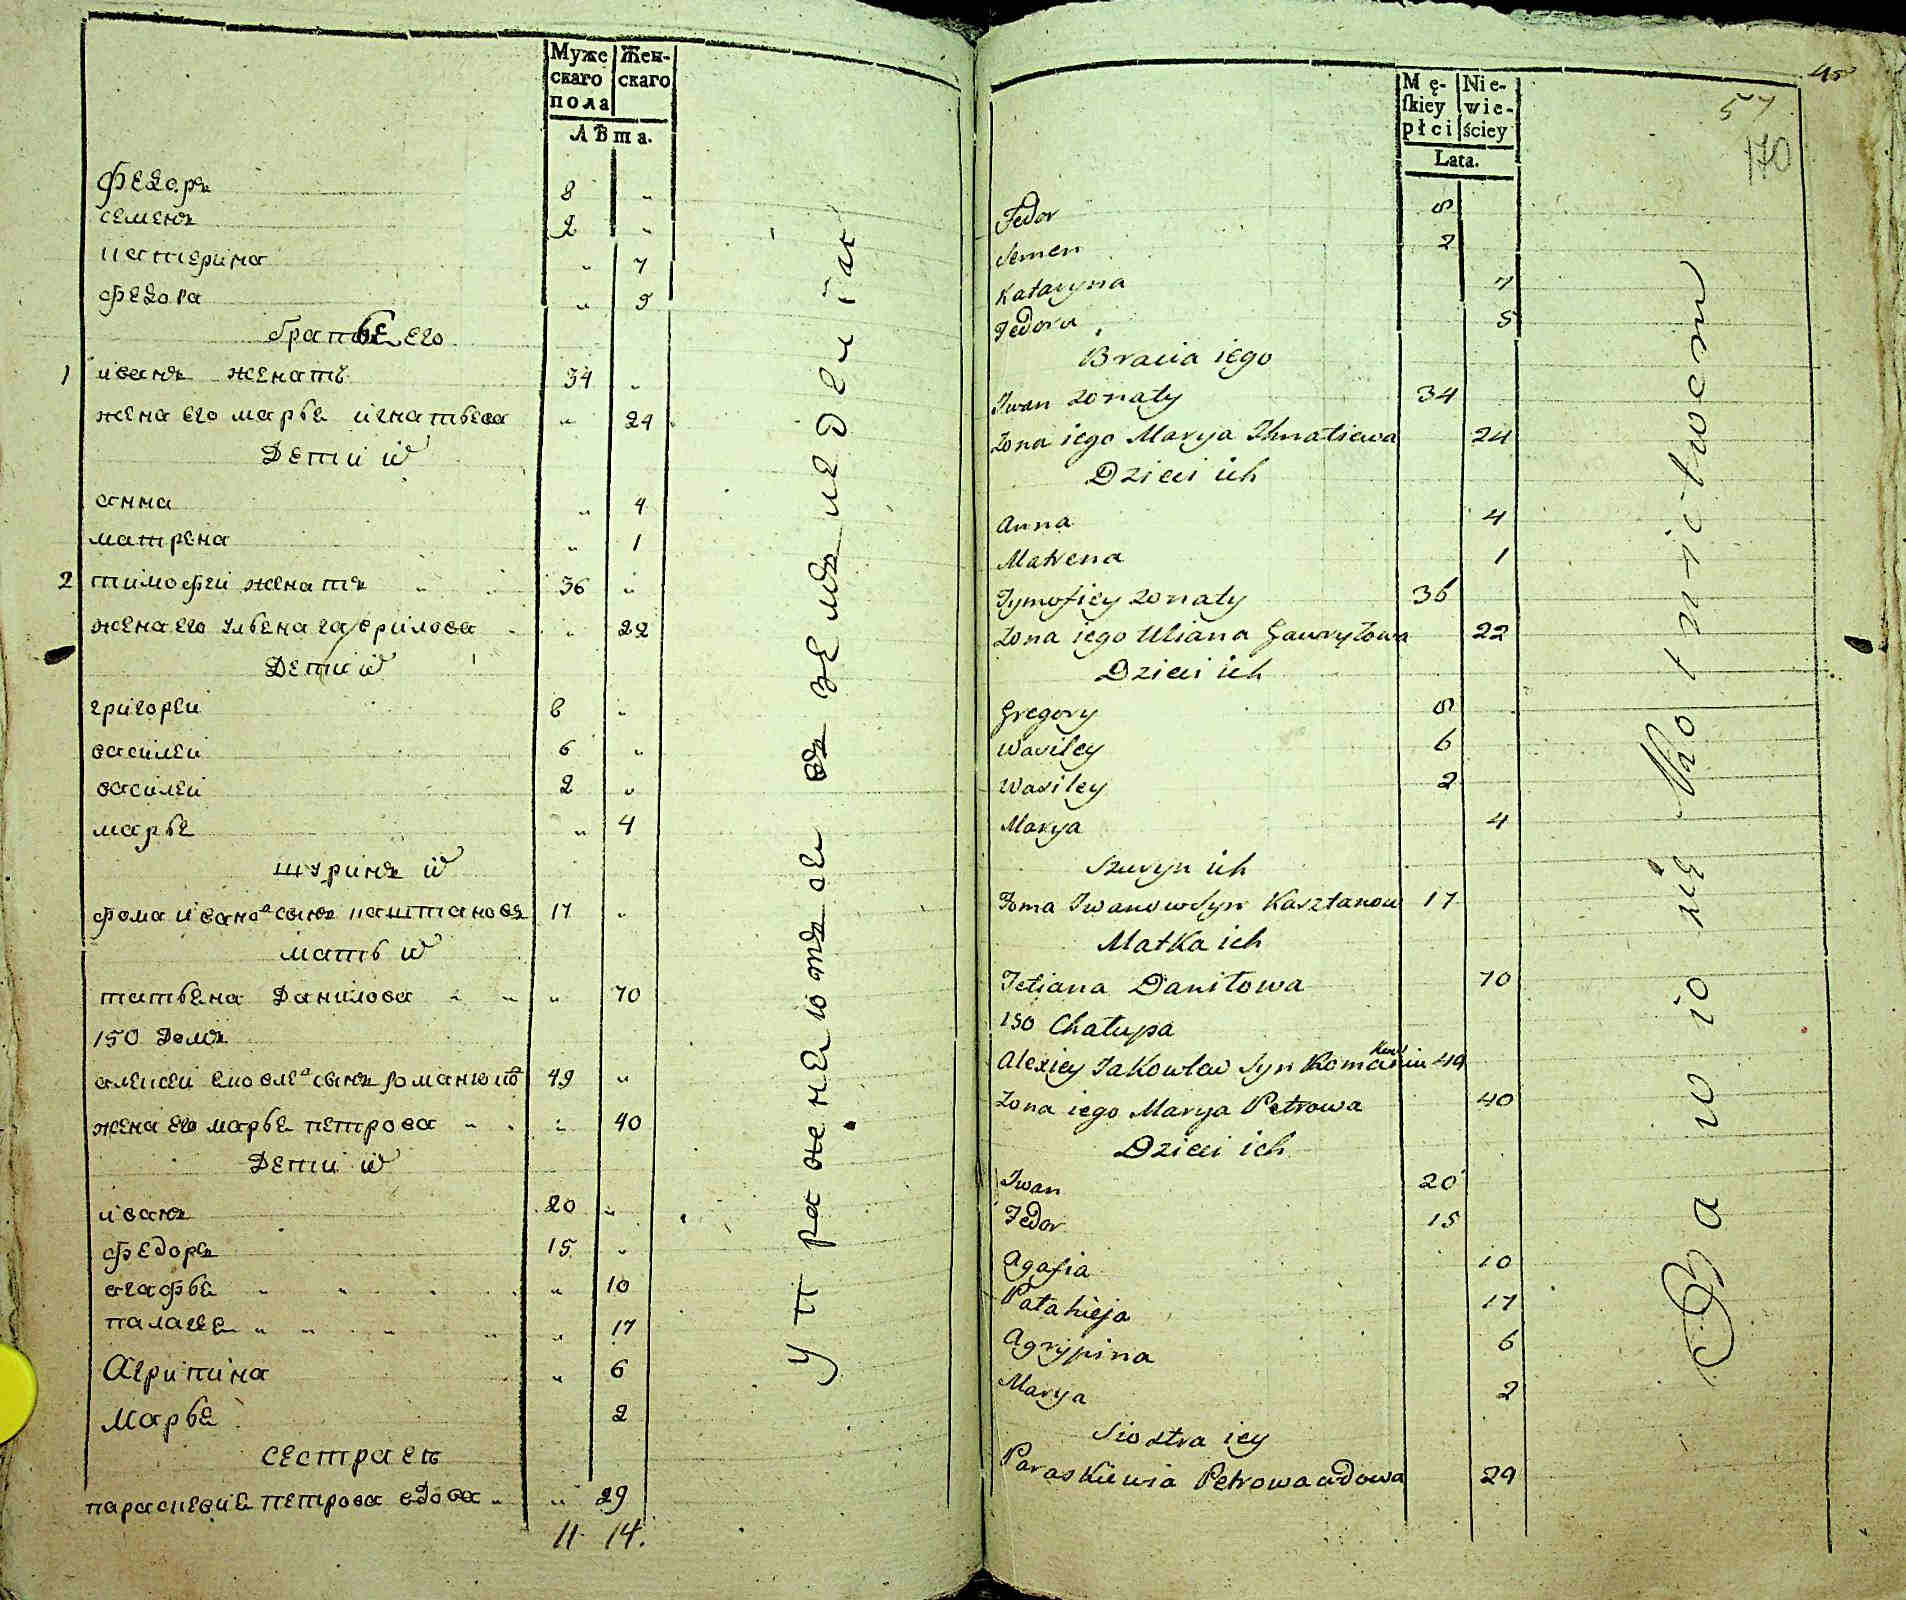 Муже Жен-
скаго скаго
пола
Лѣта.
Федоръ 8 "
семенъ 2 "
катерина " 7
федора " 5
братьѣ его
1 иванъ женатъ 34 "
жена его марье игнатьева " 24
Дети их
анна " 4
матрена " 1
2 тимофеи женатъ 36 "
жена его ульена гаврилова " 22
Дети их
григореи 8 "
василеи 6 "
василеи 2 "
марье " 4
шуринъ их
фома иванов сынъ каштановъ 17 "
мать их
татьена Данилова " 70
150 Домъ
алексеи ековлев сынъ романюков 49 "
жена его марье петрова " 40
Дети их
иванъ 20 "
федоръ 15 "
агафье " 10
палагее " 17
Агрипина " 6
Марье 2
сестра еѣ
параскевие петрова вдова " 29
11 14.
Упражнеютъсе въ земледелiах
Mę- Nie-
skiey wie-
płci ściey
Lata.
45
57
170
Fedor 8
Semen 2
Kataryna 7
Fedora 5
Bracia iego
Iwan żonaty 34
Żona iego Marya Ihnatiewa 24
Dzieci ich
Anna 4
Matrena 1
Tymofiey żonaty 36
Żona iego Uliana Gawryłowa 22
Dzieci ich
Gregory 8
Wasiley 6
Wasiley 2
Marya 4
Szuryn ich
Foma Iwanow Syn Kasztanow 17
Matka ich
Tetiana Daniłowa 70
150 Chałupa
Alexiey Jakowlew Syn Romaniu 49
Żona iego Marya Petrowa 40
Dzieci ich
Iwan 20
Fedor 15
Agafia 10
Pałahieja 17
Agrypina 6
Marya 2
Siostra iey
Paraskiewia Petrowa wdowa 29
Bawio się Rolnictwem